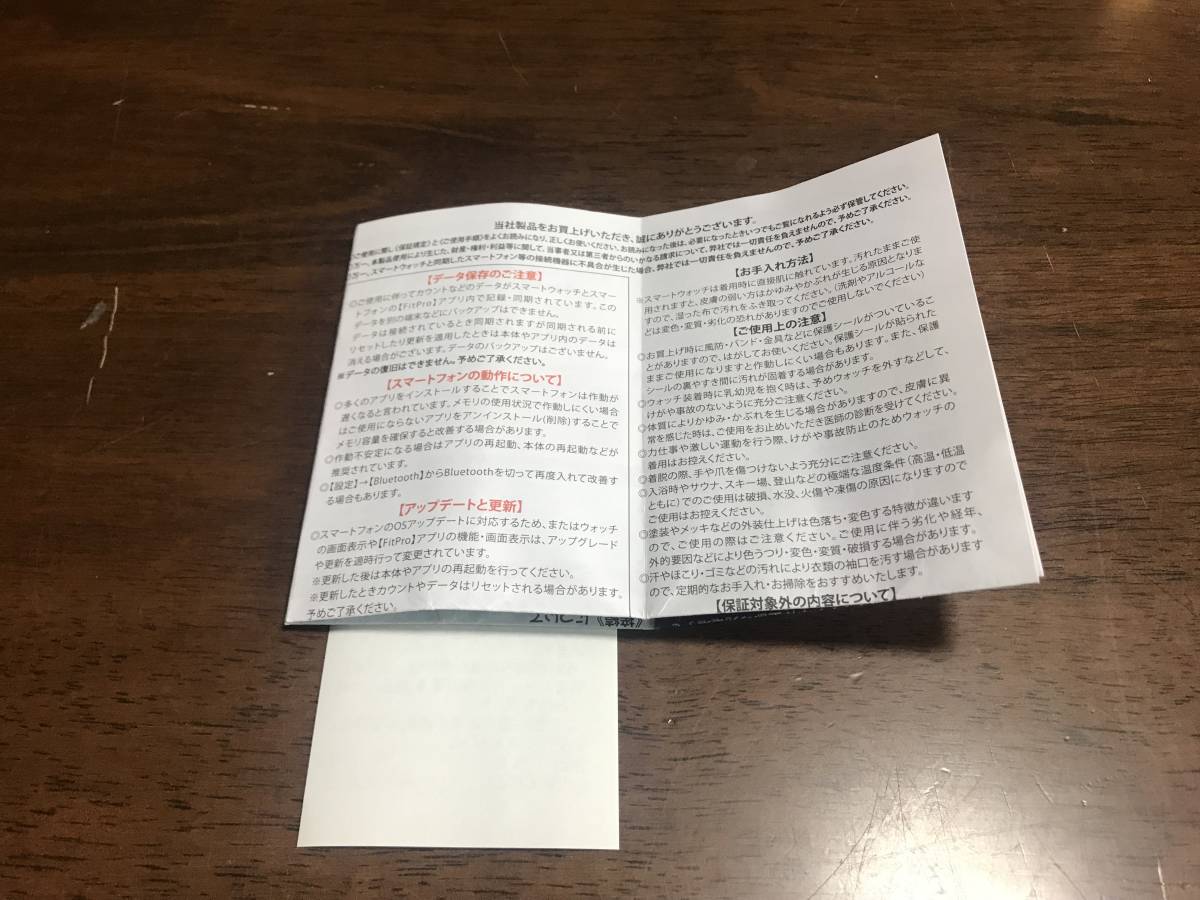 当社製品をお買上げいただき、誠にありがとうございます。
ご使用に関し《保証規定》と《ご使用手順》をよくお読みになり、正しくお使いください。お読みになった後は、必要になったときいつでもご覧になれるよう必ず保管してください。
万一、本製品使用により生じた、財産・権利・利益等に関して、当事者又は第三者からのいかなる請求について、弊社では一切責任を負えませんので、予めご了承ください。
万一、スマートウォッチと同期したスマートフォン等の接続機器に不具合が生じた場合、弊社では一切責任を負えませんので、予めご了承ください。
【データ保存のご注意】
◎ご使用に伴ってカウントなどのデータがスマートウォッチとスマー
トフォンの【FitPro】アプリ内で記録・同期されています。この
データを別の端末などにバックアップはできません。
データは接続されているとき同期されますが同期される前に
リセットしたり更新を適用したときは本体やアプリ内のデータは
消える場合がございます。データのバックアップはございません。
※データの復旧はできません。予めご了承ください。
【スマートフォンの動作について】
◎多くのアプリをインストールすることでスマートフォンは作動が
遅くなると言われています。メモリの使用状況で作動しにくい場合
はご使用にならないアプリをアンインストール(削除)することで
メモリ容量を確保すると改善する場合があります。
◎作動不安定になる場合はアプリの再起動、本体の再起動などが
推奨されています。
◎【設定】→【Bluetooth】からBluetoothを切って再度入れて改善す
る場合もあります。
【アップデートと更新】
◎スマートフォンのOSアップデートに対応するため、またはウォッチ
の画面表示や【FitPro】アプリの機能・画面表示は、アップグレード
や更新を適時行って変更されています。
※更新した後は本体やアプリの再起動を行ってください。
※更新したときカウントやデータはリセットされる場合があります。
予めご了承ください。
【お手入れ方法】
※スマートウォッチは着用時に直接肌に触れています。汚れたままご使
用されますと、皮膚の弱い方はかゆみやかぶれが生じる原因となりま
すので、湿った布で汚れをふき取ってください。(洗剤やアルコールな
どは変色・変質・劣化の恐れがありますのでご使用しないでください)
【ご使用上の注意】
◎お買上げ時に風防・バンド・金具などに保護シールがついているこ
とがありますので、はがしてお使いください。保護シールが貼られた
ままご使用になりますと作動しにくい場合もあります。また、保護
シールの裏やすき間に汚れが固着する場合があります。
◎ウォッチ装着時に乳幼児を抱く時は、予めウォッチを外すなどして、
けがや事故のないように充分ご注意ください。
◎体質によりかゆみ・かぶれを生じる場合がありますので、皮膚に異
常を感じた時は、ご使用をお止めいただき医師の診断を受けてください。
◎力仕事や激しい運動を行う際、けがや事故防止のためウォッチの
着用はお控えください。
◎着脱の際、手や爪を傷つけないよう充分にご注意ください。
◎入浴時やサウナ、スキー場、登山などの極端な温度条件(高温・低温
ともに)でのご使用は破損、水没、火傷や凍傷の原因になりますので
ご使用はお控えください。
◎塗装やメッキなどの外装仕上げは色落ち・変色する特徴が違います
ので、ご使用の際はご注意ください。ご使用に伴う劣化や経年、
外的要因などにより色うつり・変色・変質・破損する場合があります。
◎汗やほこり・ゴミなどの汚れにより衣類の袖口を汚す場合があります
ので、定期的なお手入れ・お掃除をおすすめいたします。
【保証対象外の内容について】
《接続》について